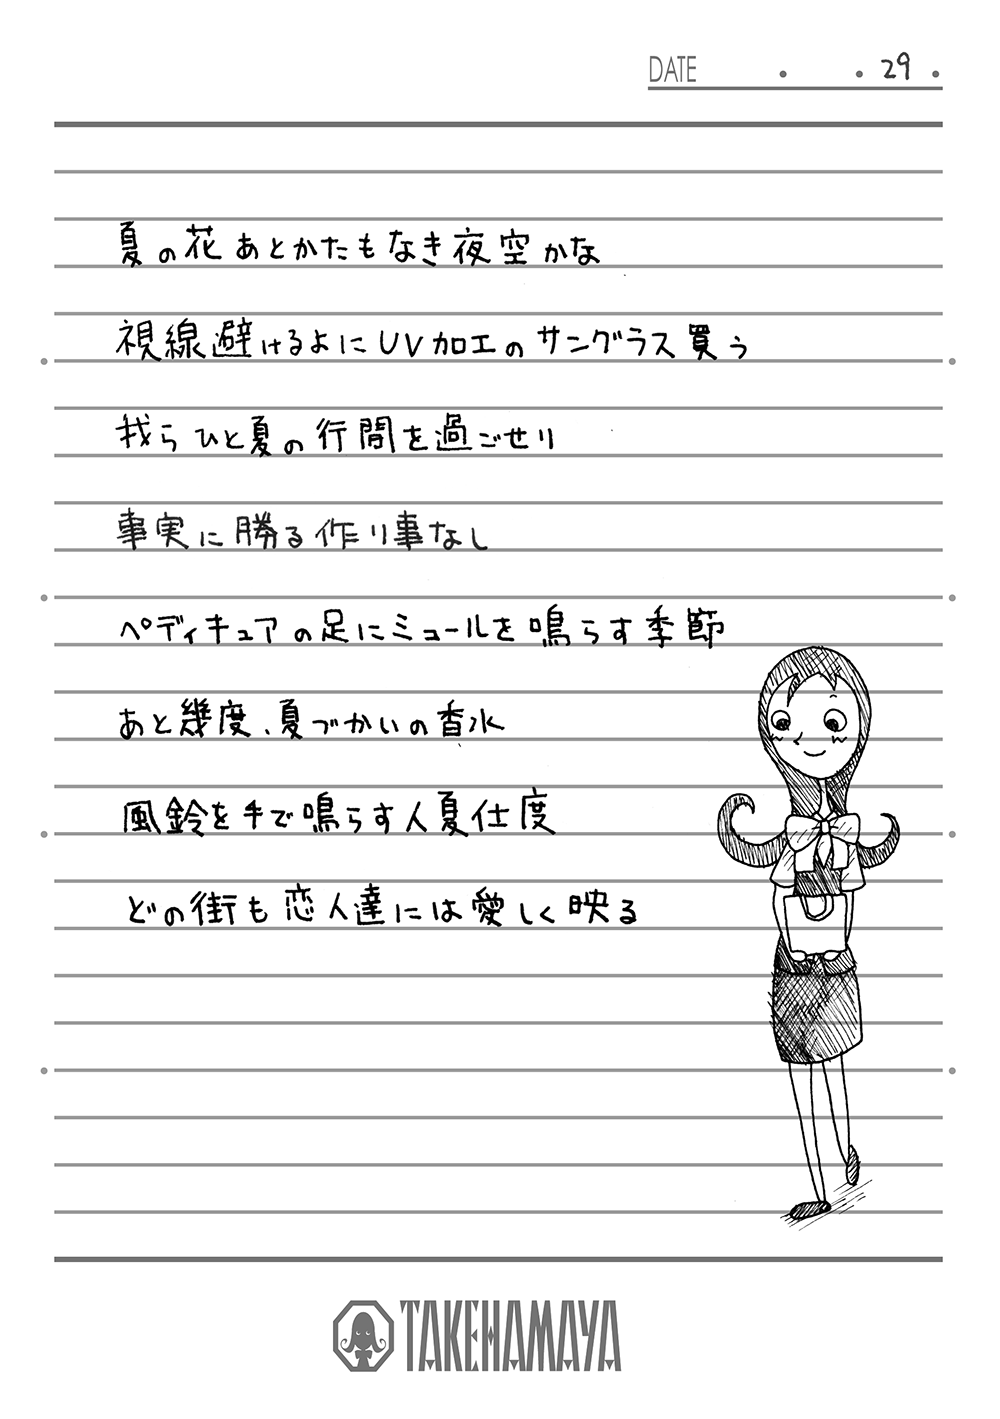 DATE ・ ・ 29 ・
夏の花あとかたもなき夜空かな
視線避けるよにUV加工のサングラス買う
我らひと夏の行間を過ごせり
事実に勝る作り事なし
ペディキュアの足にミュールを鳴らす季節
あと幾度、夏づかいの香水
風鈴を手で鳴らす人夏仕度
どの街も恋人達には愛しく映る
TAKEHAMAYA